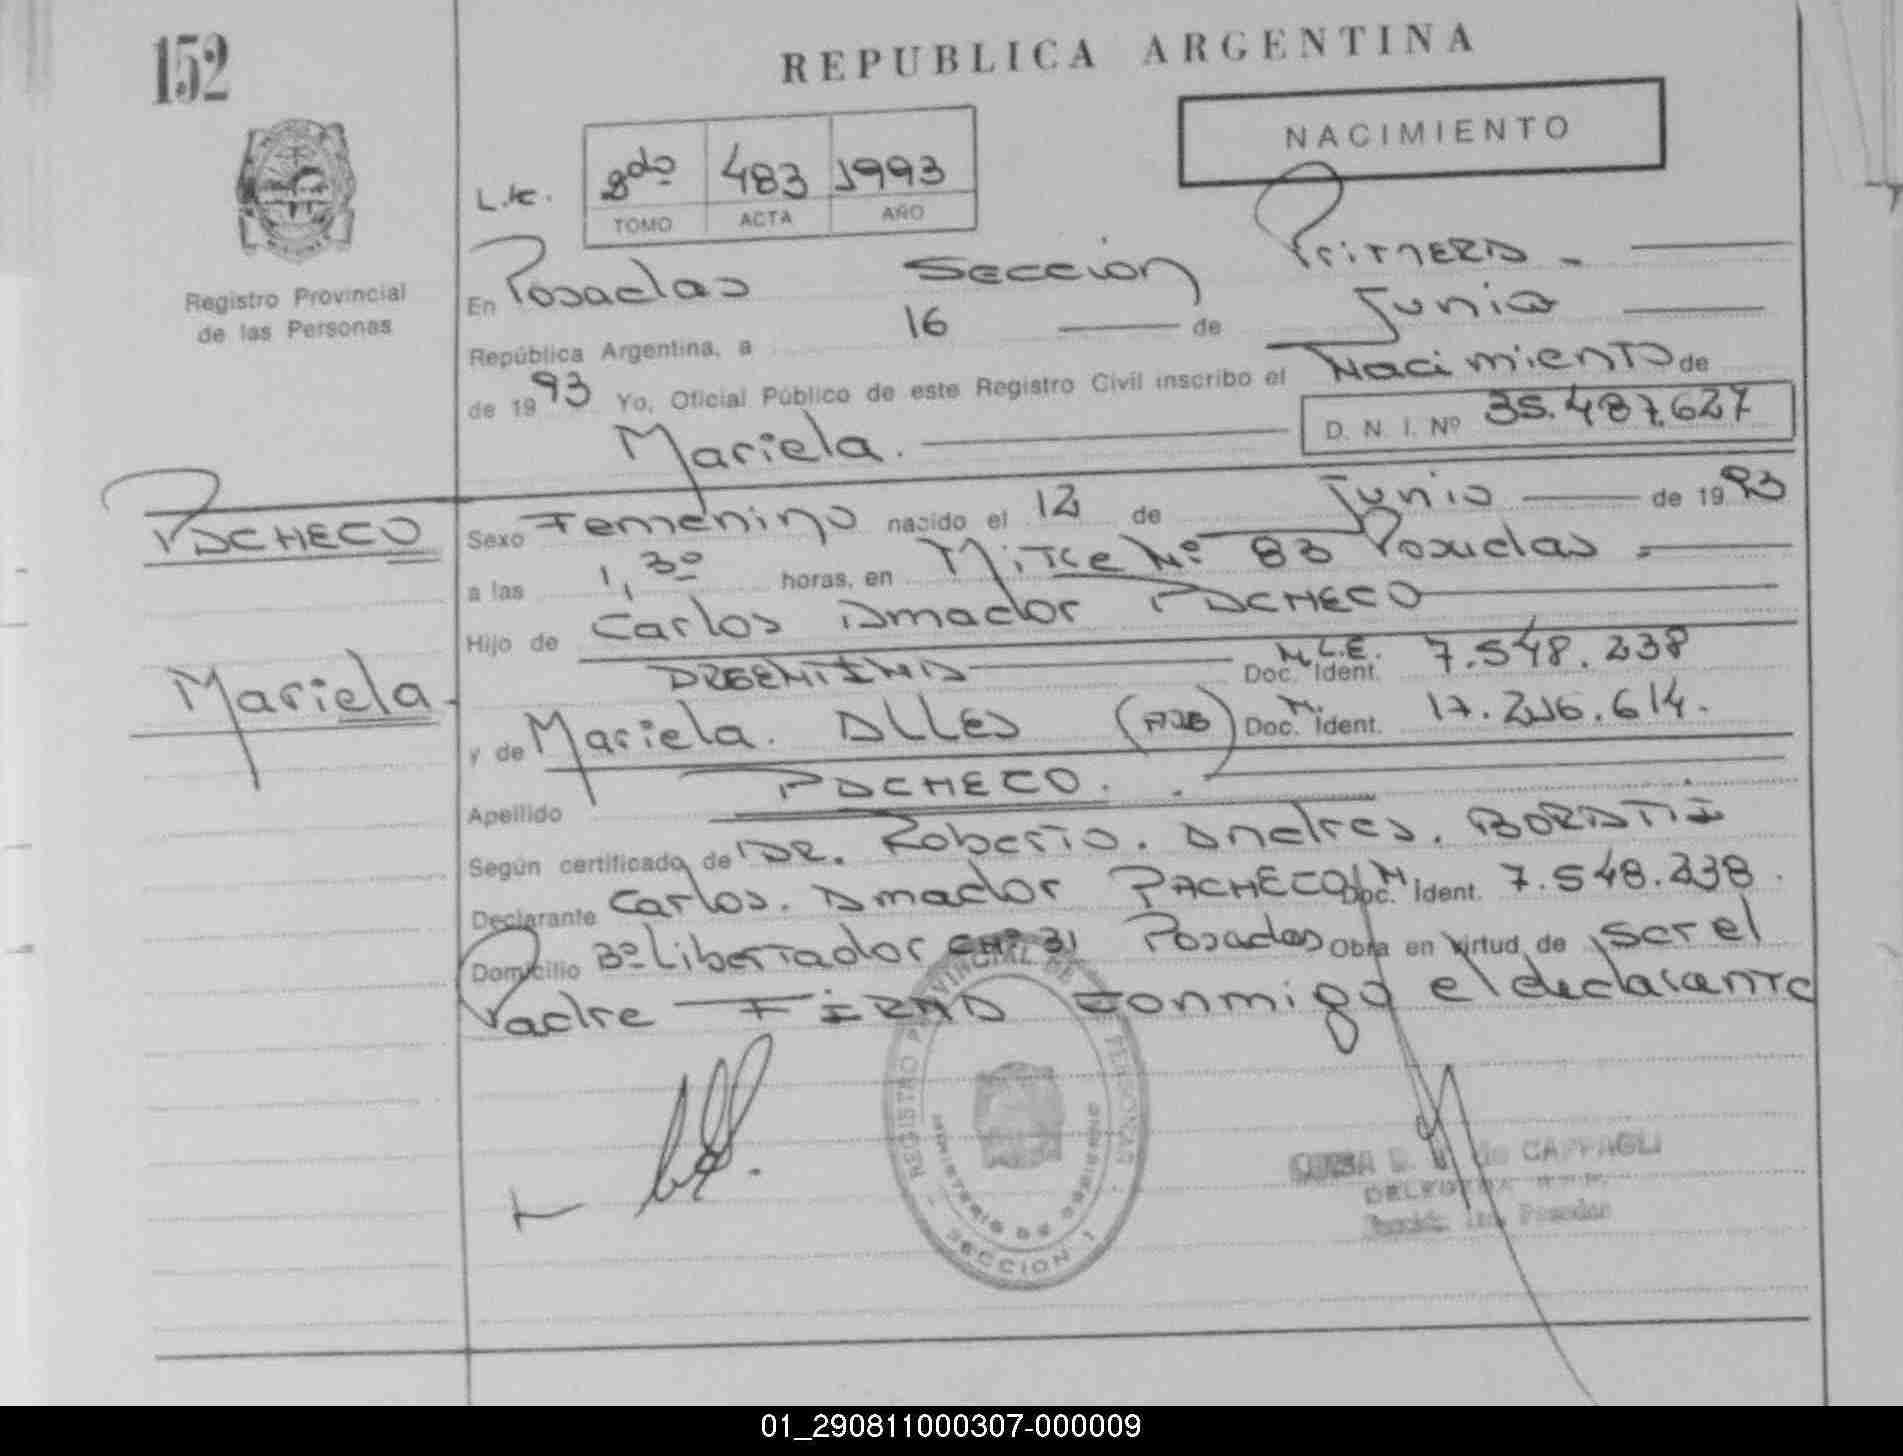 152
REPUBLICA ARGENTINA
NACIMIENTO
L.tc. 2do 483 1993
TOMO ACTA AÑO
Registro Provincial
de las Personas
En Posadas Sección Primera.-
República Argentina, a 16 de Junio
de 1993 Yo, Oficial Público de este Registro Civil inscribo el Nacimiento de
Mariela. D. N. I. Nº 35.487.627
PACHECO
Mariela
Sexo Femenino nacido el 12 de Junio de 1993
a las 1,30 horas, en Mitre Nº 83 Posadas.
Hijo de Carlos Amador PACHECO
ARGENTINA M.L.E. Doc. Ident. 7.548.238
y de Mariela. ALLES Doc. M. Ident. 17.216.614.
Apellido PACHECO.
Según certificado de DR. Roberto. Andres.
Declarante Carlos. Amador PACHECO Doc. M Ident. 7.548.238.
Domicilio Bº Libertador 31 Posadas Obra en virtud de ser el
Padre FIRMA conmigo el declarante
REGISTRO PROVINCIAL DE LAS PERSONAS
MINISTERIO DE GOBIERNO
SECCION 1
de CAFFAGLI
Sección 1ra. Posadas
01_290811000307-000009